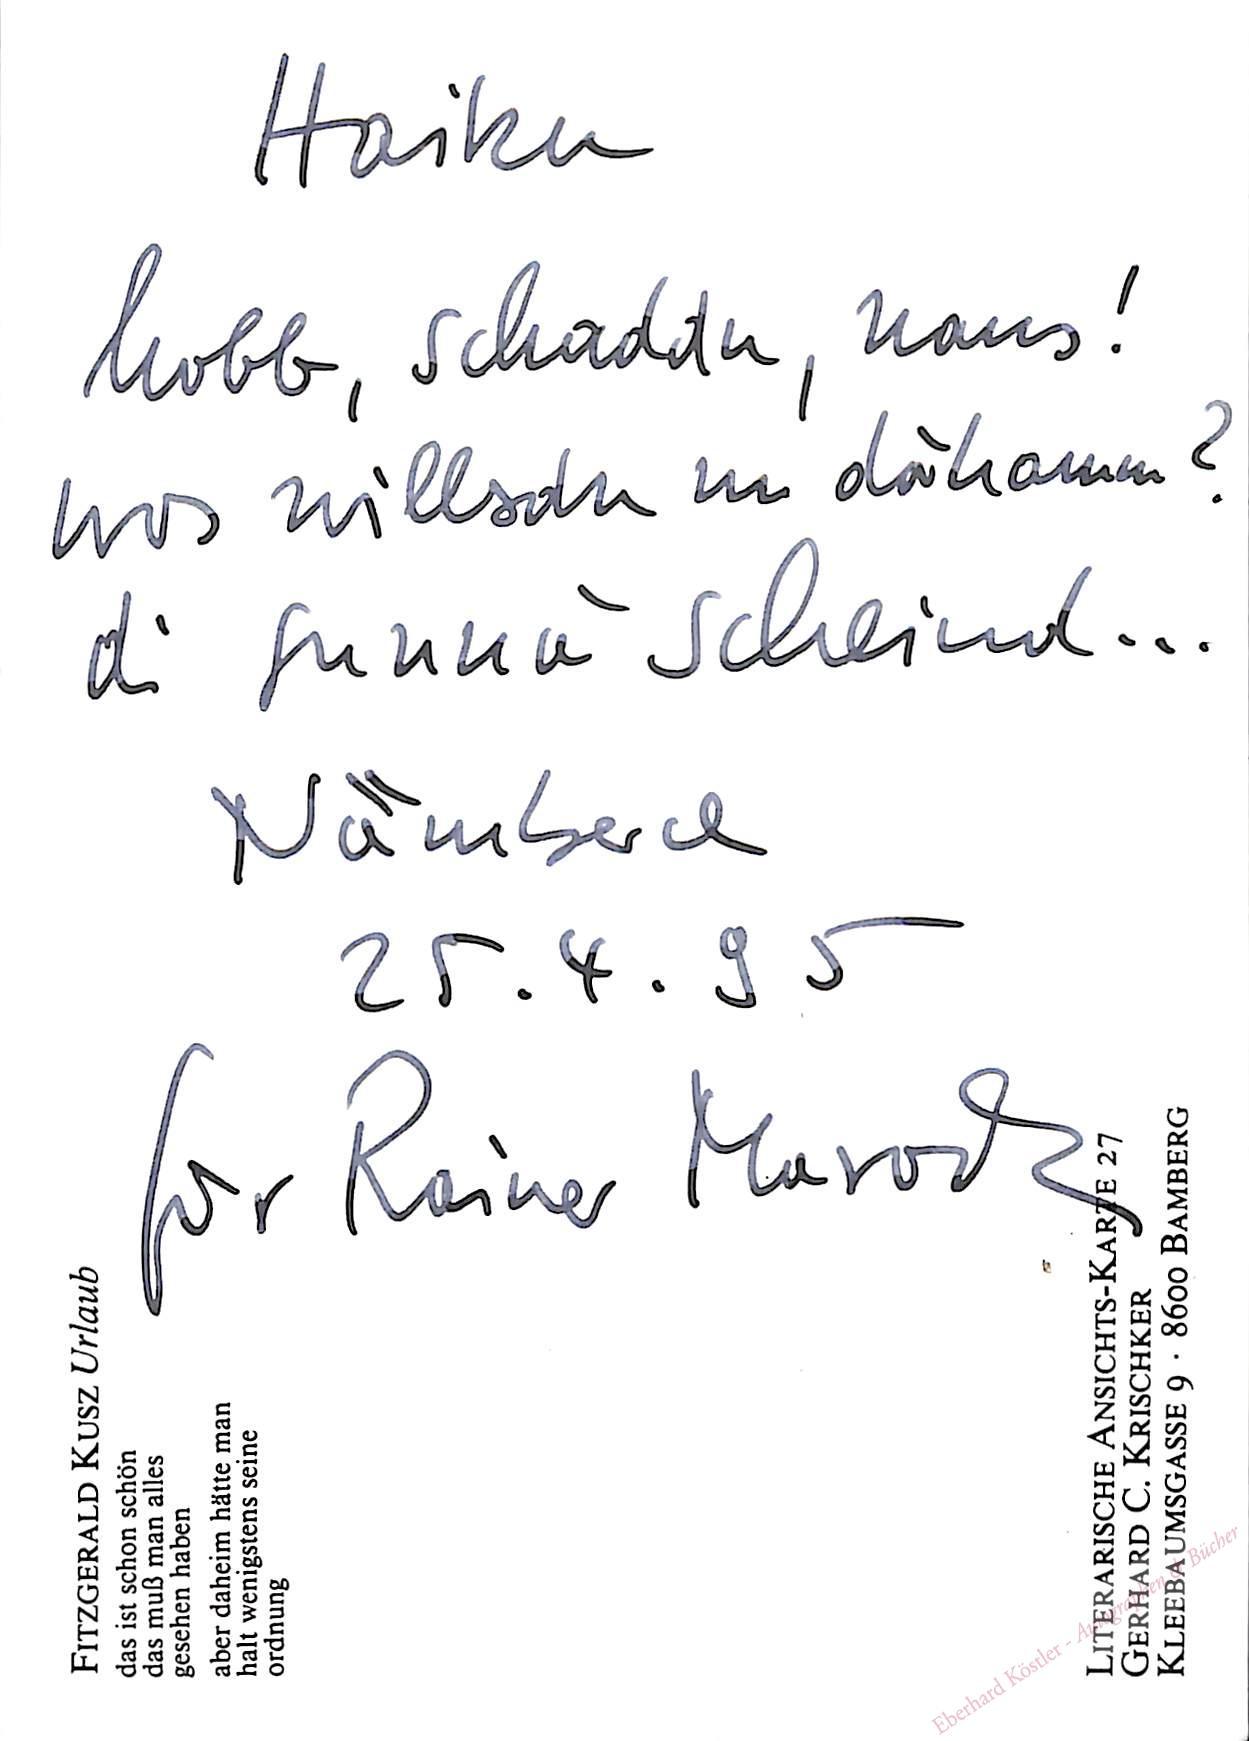 Haiku
hobb, schaddn, naus!
wos willsdn nu dàhamm?
di sunnà scheind...
Nämberch
25.4.95
für Rainer
FITZGERALD KUSZ Urlaub
das ist schon schön
das muß man alles
gesehen haben
aber daheim hätte man
halt wenigstens seine
ordnung
LITERARISCHE ANSICHTS-KARTE 27
GERHARD C. KRISCHKER
KLEEBAUMSGASSE 9 · 8600 BAMBERG
Eberhard Köstler - Autographen & Bücher